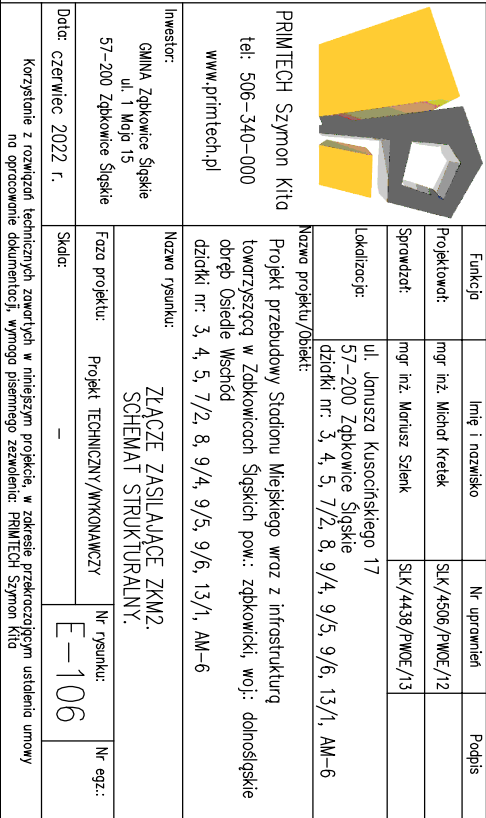 PRIMTECH Szymon Kita
tel: 506-340-000
www.primtech.pl
Funkcja
Imię i nazwisko
Nr uprawnień
Podpis
Projektował:
mgr inż. Michał Kretek
SLK/4506/PWOE/12
Sprawdzał:
mgr inż. Mariusz Szlenk
SLK/4438/PWOE/13
Lokalizacja:
ul. Janusza Kusocińskiego 17
57-200 Ząbkowice Śląskie
działki nr: 3, 4, 5, 7/2, 8, 9/4, 9/5, 9/6, 13/1, AM-6
Nazwa projektu/Obiekt:
Projekt przebudowy Stadionu Miejskiego wraz z infrastrukturą
towarzyszącą w Ząbkowicach Śląskich pow.: ząbkowicki, woj.: dolnośląskie
obręb Osiedle Wschód
działki nr: 3, 4, 5, 7/2, 8, 9/4, 9/5, 9/6, 13/1, AM-6
Inwestor:
GMINA Ząbkowice Śląskie
ul. 1 Maja 15
57-200 Ząbkowice Śląskie
Nazwa rysunku:
ZŁĄCZE ZASILAJĄCE ZKM2.
SCHEMAT STRUKTURALNY.
Faza projektu:
Projekt TECHNICZNY/WYKONAWCZY
Nr rysunku:
E-106
Nr egz.:
Data: czerwiec 2022 r.
Skala:
–
Korzystanie z rozwiązań technicznych zawartych w niniejszym projekcie, w zakresie przekraczającym ustalenia umowy
na opracowanie dokumentacji, wymaga pisemnego zezwolenia: PRIMTECH Szymon Kita